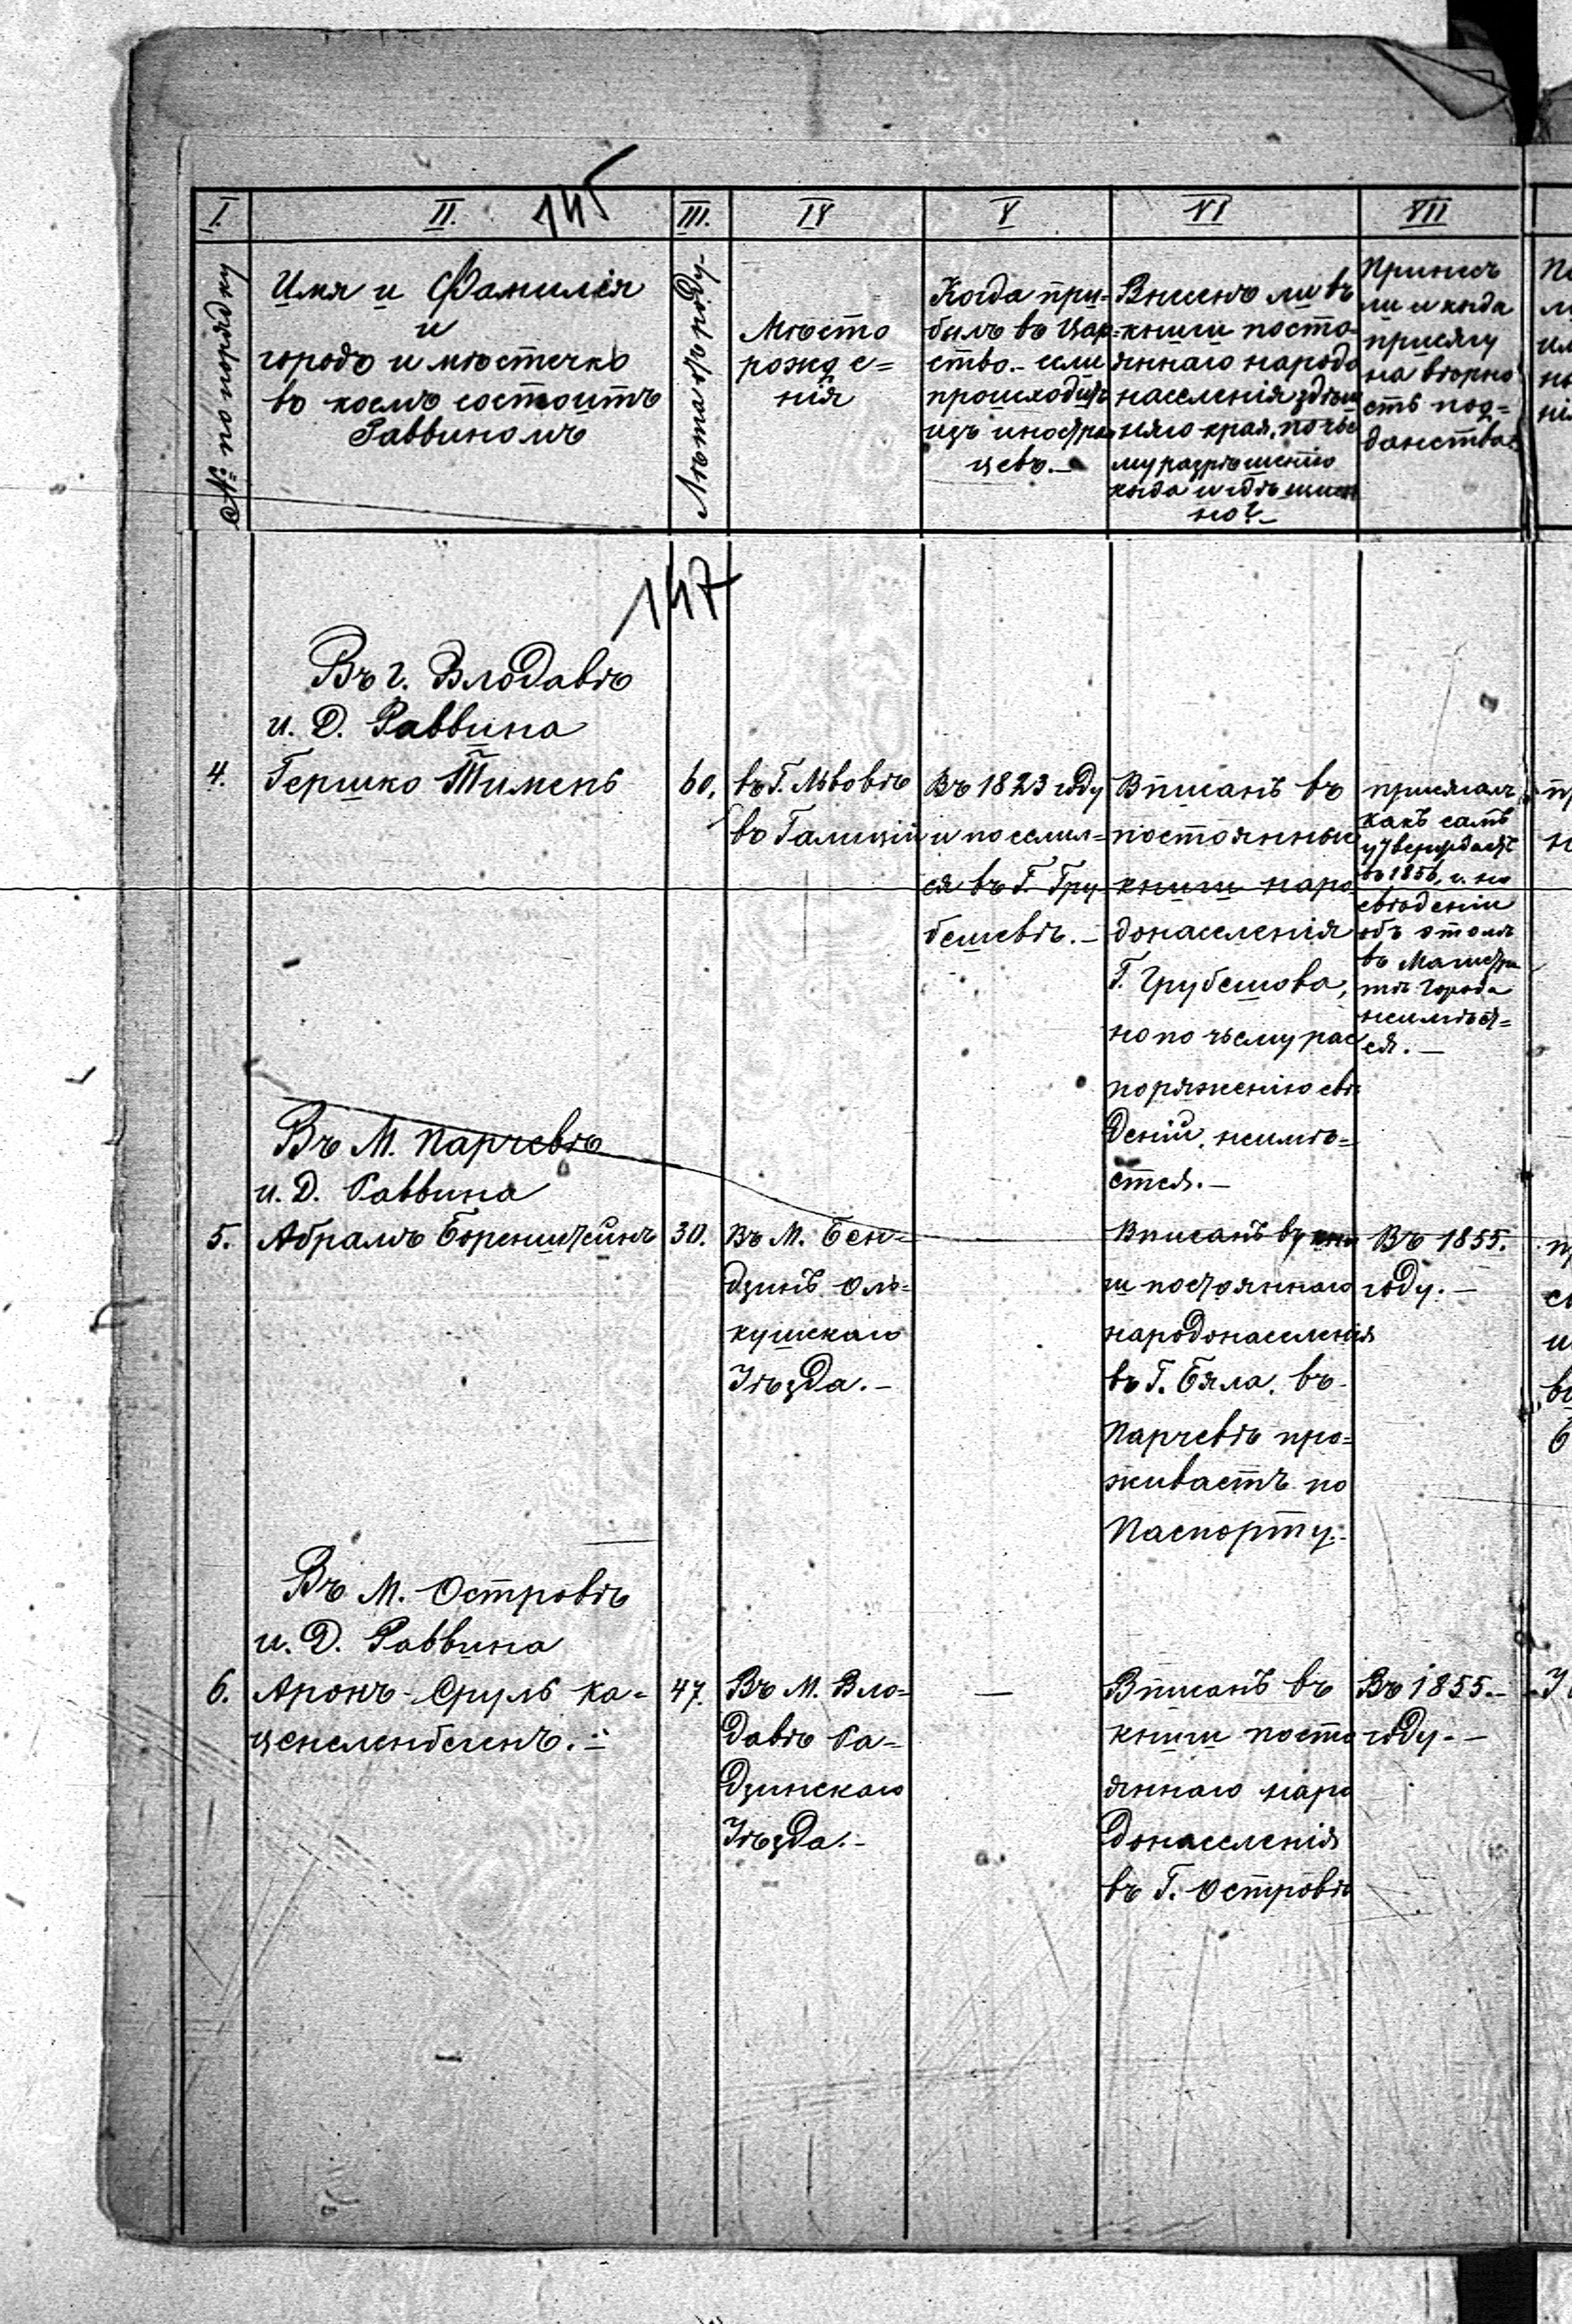 145
I. II. III. IV V VI VII
№ по порядку
Имя и Фамилія
и
городъ и мѣстечко
въ коемъ состоитъ
Раввиномъ
Лѣта отъ роду
Мѣсто
рожде=
нія
Когда при=
былъ въ Цар=
ство.- если
происходитъ
изъ иностран
цевъ.-
Внесенъ ли въ
книги посто-
яннаго народо
населенія здѣш
няго края, по чье
му разрѣшенію
когда и гдѣ имен
но?-
Принялъ
ли и когда
присягу
на вѣрно
сть под=
данства
147
Въ г. Влодавѣ
и. Д. Раввина
4. Гершко Тименъ
60.
въ Г. Львовѣ
въ Галиціи
Въ 1823 году
и поселил=
ся въ Г. Гру-
бешевѣ.-
Вписанъ въ
постоянныя
книги наро-
донаселенія
Г. Грубешова,
но по чьему рас
поряженію свѣ
деній, неимѣ=
ется.-
присягалъ
какъ самъ
утверждаетъ
въ 1856, г. но
свѣдѣній
объ этомъ
въ Магистра
тѣ города
неимѣет=
ся.-
Въ М. Парчевѣ
и. Д. Раввина
5. Абрамъ Боренштейнъ
30.
Въ М. Бен=
дзинѣ Оль=
кушскаго
Уѣзда.-
Вписанъ въ кни
ги постояннаго
народонаселенія
въ Г. Бяла. въ
Парчевѣ про=
живаетъ по
Паспорту.-
Въ 1855.
году.-
Въ М. Островѣ
и. Д. Раввина
6. Аронъ-Сруль Ка=
ценеленбогенъ.-
47.
Въ М. Вло=
давѣ Ра=
дзинскаго
Уѣзда.-
—
Вписанъ въ
книги посто
яннаго наро
донаселенія
въ Г. Островѣ
Въ 1855.-
году.-